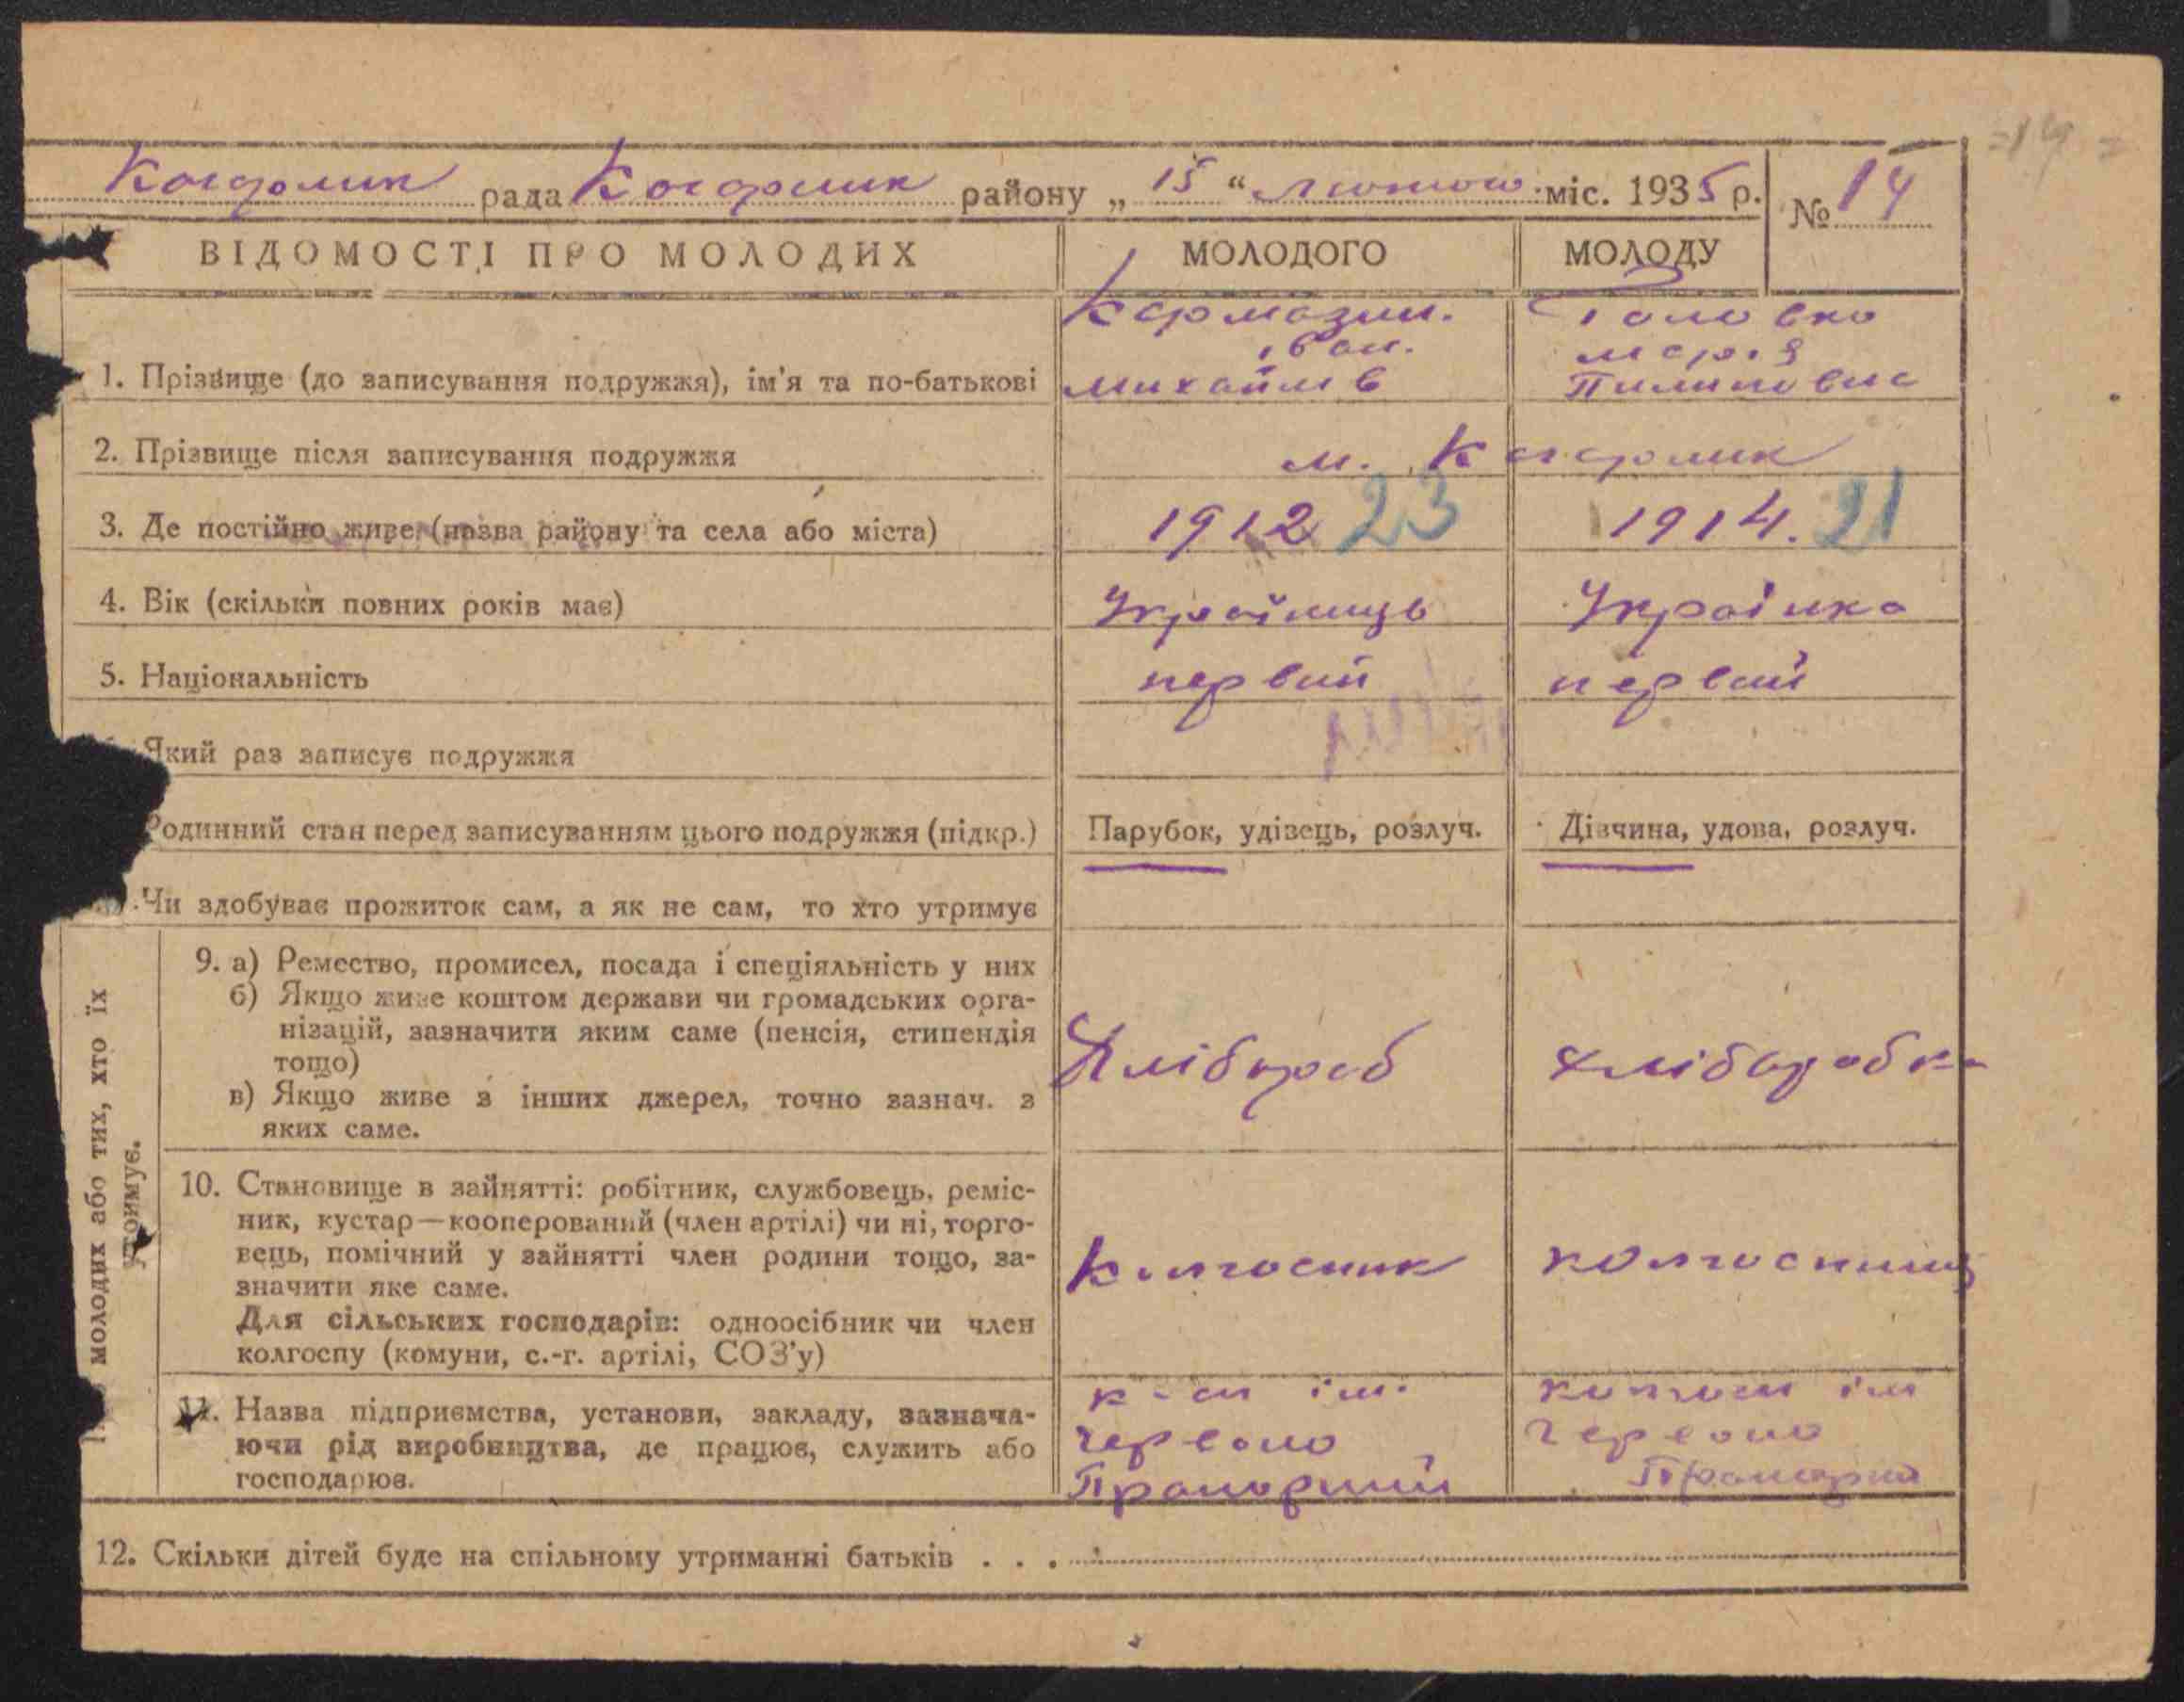 Кагарлик рада Кагарлик району „ 15 “ лютого міс. 1935 р. № 14
ВІДОМОСТІ ПРО МОЛОДИХ МОЛОДОГО МОЛОДУ
Кармазин. Головко
Іван. Марія
1. Прізвище (до записування подружжя), ім'я та по-батькові Михайлів Пилиповна
2. Прізвище після записування подружжя м. Кагарлик
3. Де постійно живе (назва району та села або міста) 1912 23 1914. 21
4. Вік (скільки повних років має) Українець Українка
5. Національність первий первий
Який раз записує подружжя
Родинний стан перед записуванням цього подружжя (підкр.) Парубок, удівець, розлуч. Дівчина, удова, розлуч.
Чи здобуває прожиток сам, а як не сам, то хто утримує
молодих або тих, хто їх
утримує.
9. а) Ремество, промисел, посада і спеціяльність у них
б) Якщо живе коштом держави чи громадських орга-
нізацій, зазначити яким саме (пенсія, стипендія
тощо) Хлібороб хліборобка
в) Якщо живе з інших джерел, точно зазнач. з
яких саме.
10. Становище в зайнятті: робітник, службовець, реміс-
ник, кустар—кооперований (член артілі) чи ні, торго-
вець, помічний у зайнятті член родини тощо, за- Колгосник колгосниця
значити яке саме.
Для сільських господарів: одноосібник чи член
колгоспу (комуни, с.-г. артілі, СОЗ'у)
к-сп ім. колгосп ім
11. Назва підприємства, установи, закладу, зазнача-
ючи рід виробництва, де працює, служить або Червоно Червоно
господарює. Прапорний
12. Скільки дітей буде на спільному утриманні батьків . . .